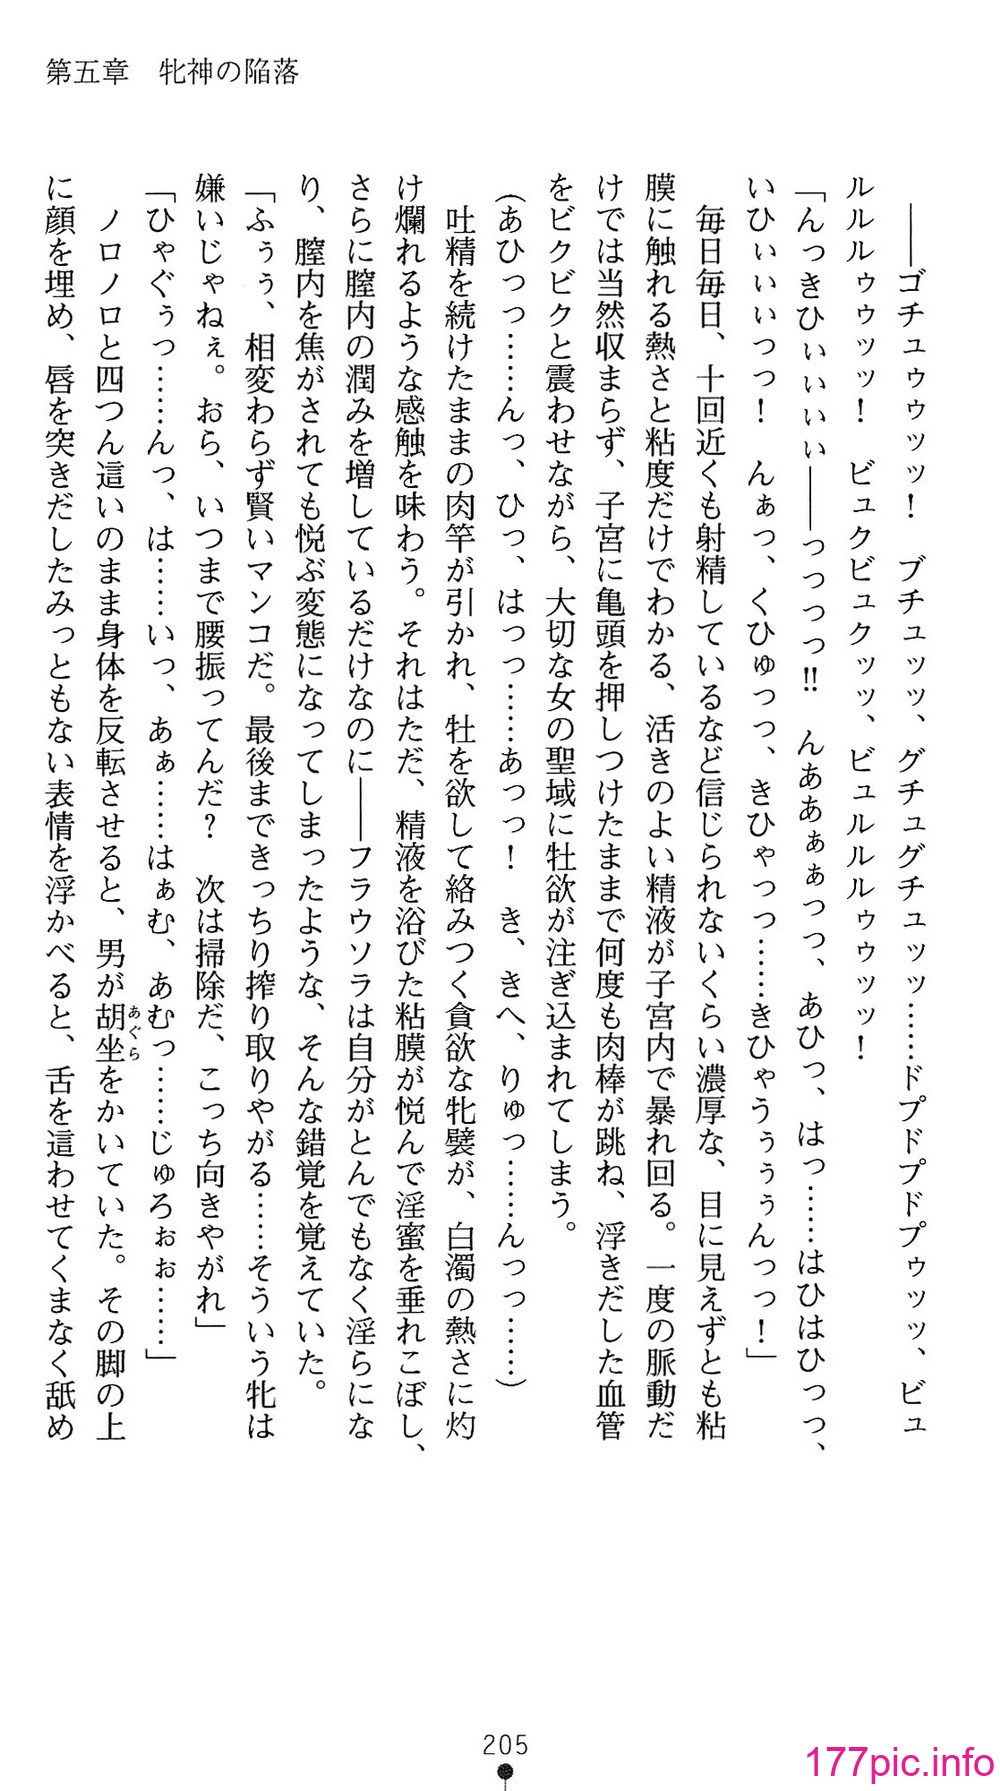 第五章　牝神の陥落
　――ゴチュゥゥッッ！　ブチュッッ、グチュグチュッッ……ドプドプドプゥッッ、ビュ
ルルルゥゥッッ！　ビュクビュクッッ、ビュルルルゥゥッッ！
「んっきひぃぃぃぃ――っっっっ!!　んああぁぁっっ、あひっ、はっ……はひはひっっ、
いひぃぃぃっっ！　んぁっ、くひゅっっ、きひゃっっ……きひゃうぅぅぅんっっ！」
　毎日毎日、十回近くも射精しているなど信じられないくらい濃厚な、目に見えずとも粘
膜に触れる熱さと粘度だけでわかる、活きのよい精液が子宮内で暴れ回る。一度の脈動だ
けでは当然収まらず、子宮に亀頭を押しつけたままで何度も肉棒が跳ね、浮きだした血管
をビクビクと震わせながら、大切な女の聖域に牡欲が注ぎ込まれてしまう。
（あひっっ……んっ、ひっ、はっっ……あっっ！　き、きへ、りゅっ……んっっ……）
　吐精を続けたままの肉竿が引かれ、牡を欲して絡みつく貪欲な牝襞が、白濁の熱さに灼
け爛れるような感触を味わう。それはただ、精液を浴びた粘膜が悦んで淫蜜を垂れこぼし、
さらに膣内の潤みを増しているだけなのに――フラウソラは自分がとんでもなく淫らにな
り、膣内を焦がされても悦ぶ変態になってしまったような、そんな錯覚を覚えていた。
「ふぅぅ、相変わらず賢いマンコだ。最後まできっちり搾り取りやがる……そういう牝は
嫌いじゃねぇ。おら、いつまで腰振ってんだ？　次は掃除だ、こっち向きやがれ」
「ひゃぐぅっ……んっ、は……いっ、あぁ……はぁむ、あむっ……じゅろぉぉ……」
　ノロノロと四つん這いのまま身体を反転させると、男が胡坐をかいていた。その脚の上
あぐら
に顔を埋め、唇を突きだしたみっともない表情を浮かべると、舌を這わせてくまなく舐め
205
177pic.info